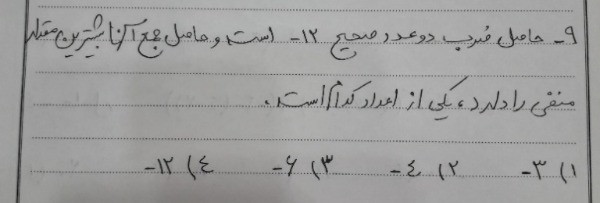 ۹- حاصل ضرب دو عدد صحیح ۱۲- است و حاصل جمع آنها بیشترین مقدار
منفی را دارد، یکی از اعداد کدام است.
۱) ۳- ۲) ۴- ۳) ۶- ۴) ۱۲-